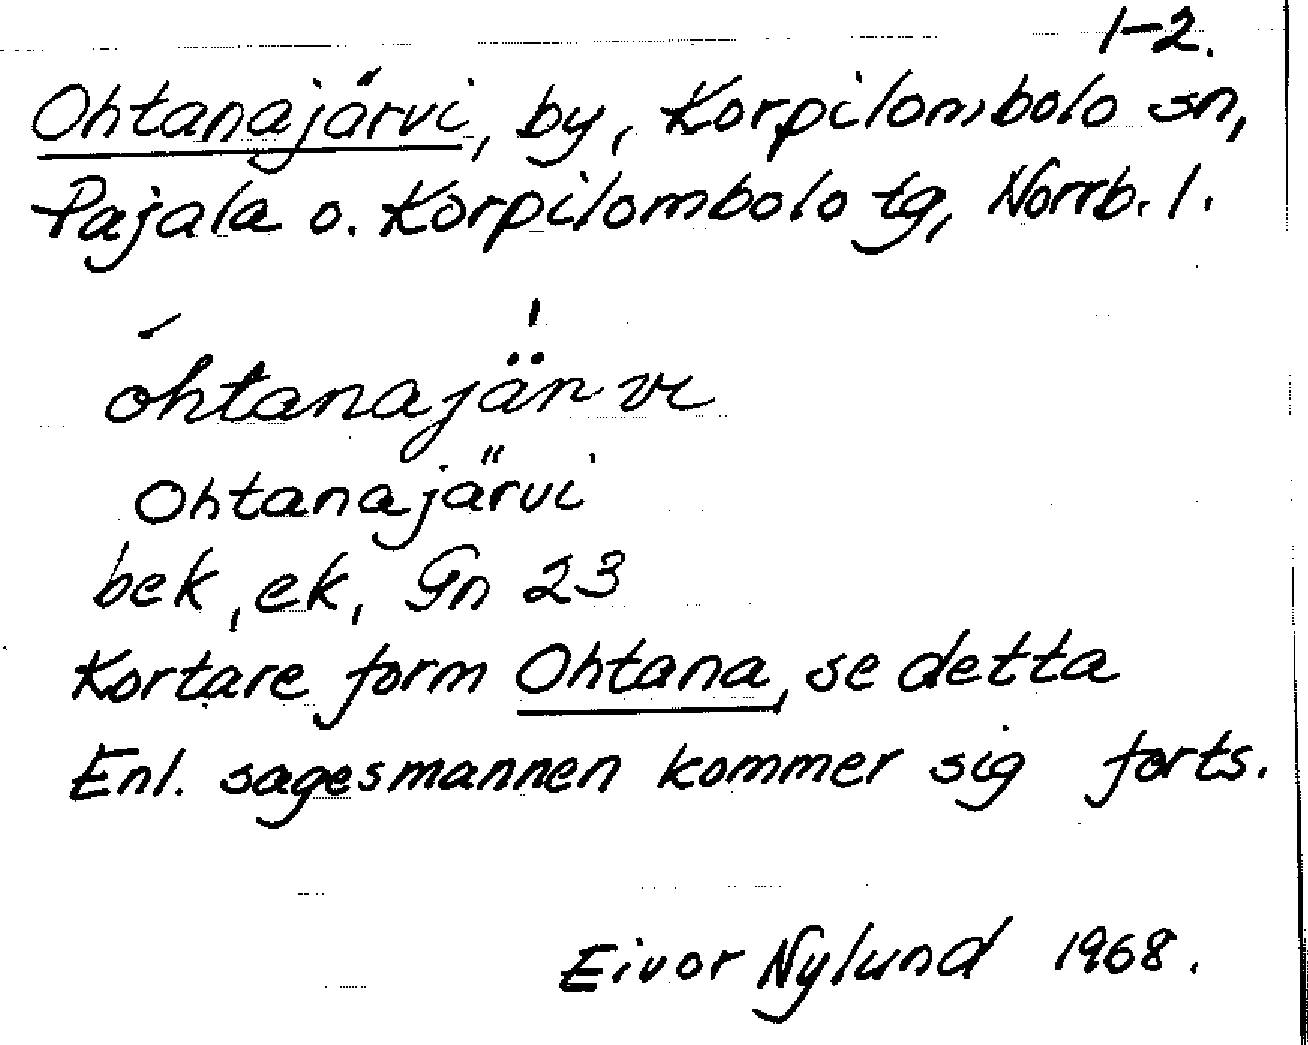 1-2.
Ohtanajärvi, by, Korpilombolo sn,
Pajala o. Korpilombolo tg, Norrb. l.
óhtanajär̀vi
Ohtanajärvi
bek, ek, Gn 23
Kortare form Ohtana, se detta
Enl. sagesmannen kommer sig forts.
Eivor Nylund 1968.